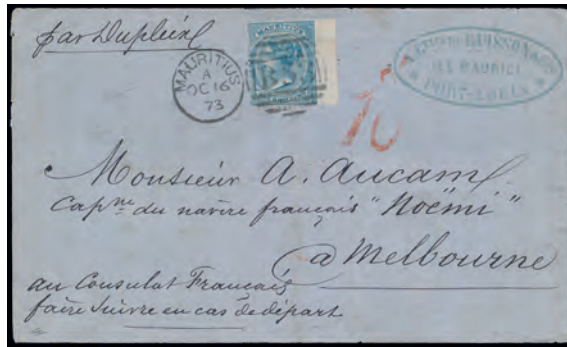 par Dupleix
MAURITIUS
A
OC 16
73
MAURITIUS
B53
BUISSON & Cie
ILE MAURICE
PORT-LOUIS
10
Monsieur A. Aucamp.
Capne du navire français "Noëmi"
a Melbourne
au Consulat Français
faire suivre en cas de départ